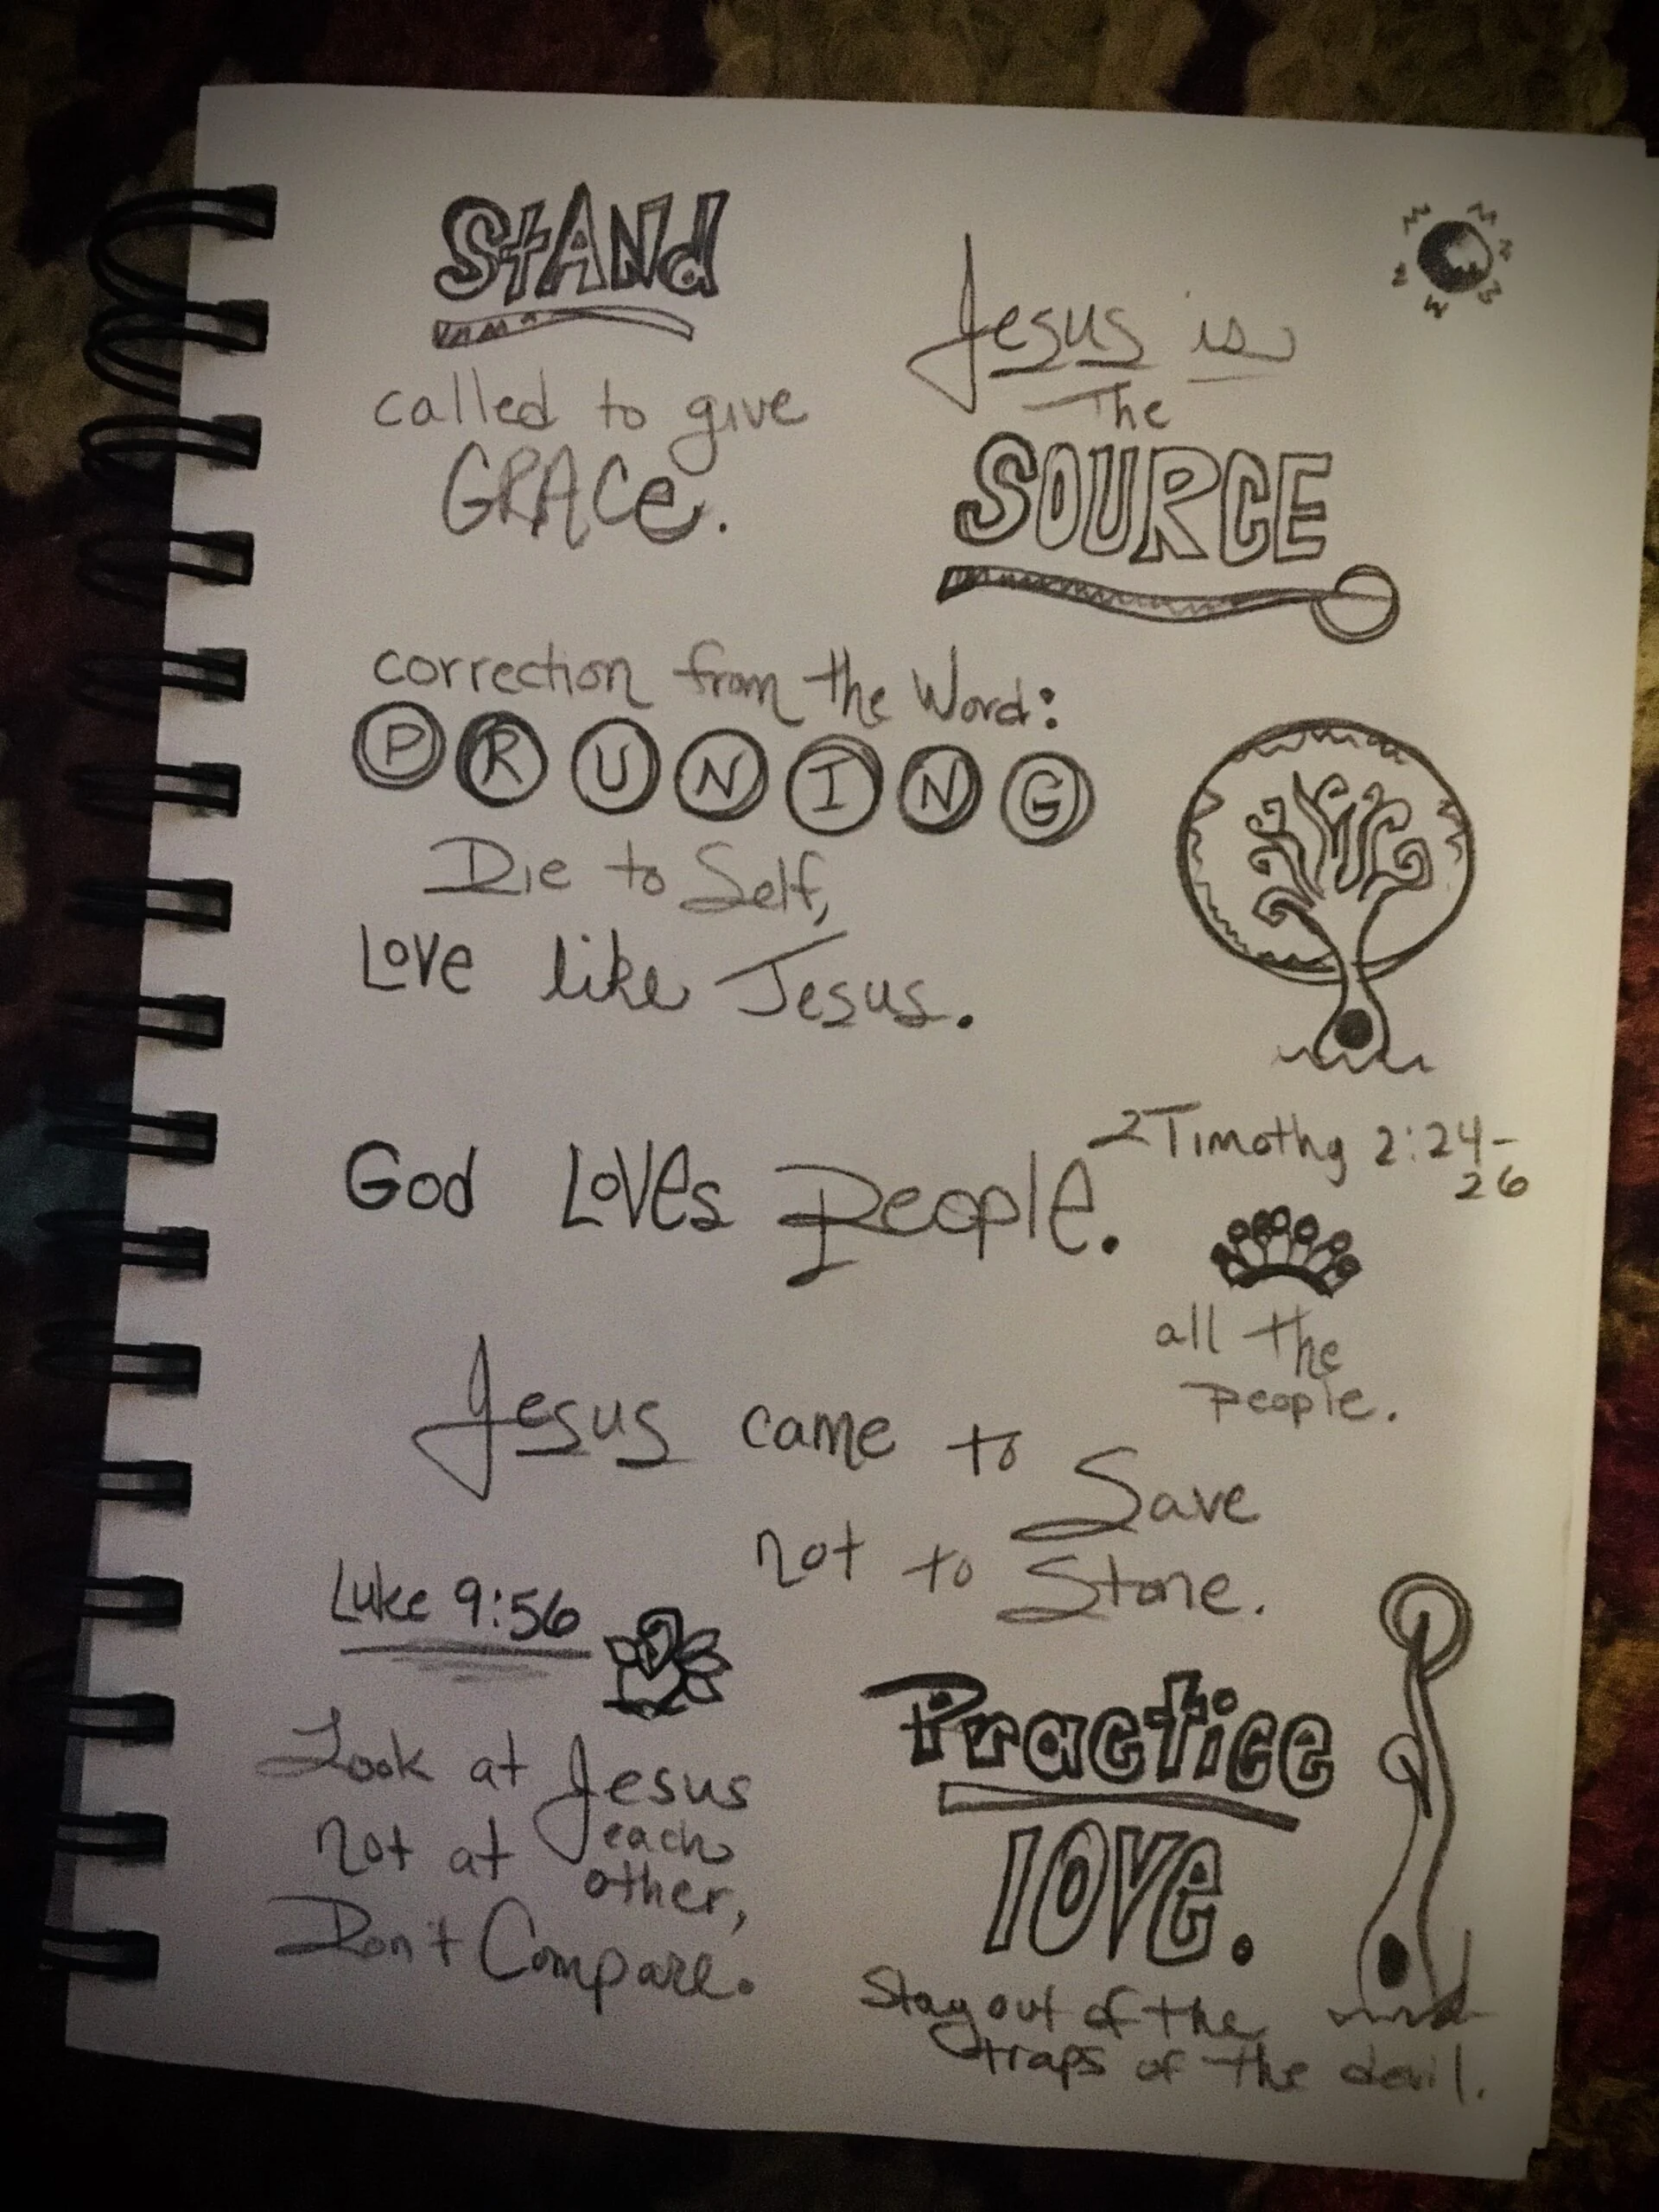 StANd
called to give
GRACe.
Jesus is
The
SOURCE
correction from the Word:
PRUNING
Die to Self,
Love like Jesus.
2 Timothy 2:24-
26
God Loves People.
all the
people.
Jesus came to Save
not to Stone.
Luke 9:56
Look at Jesus
not at each
other,
Don't Compare.
Practice
love.
Stay out of the
traps of the devil.